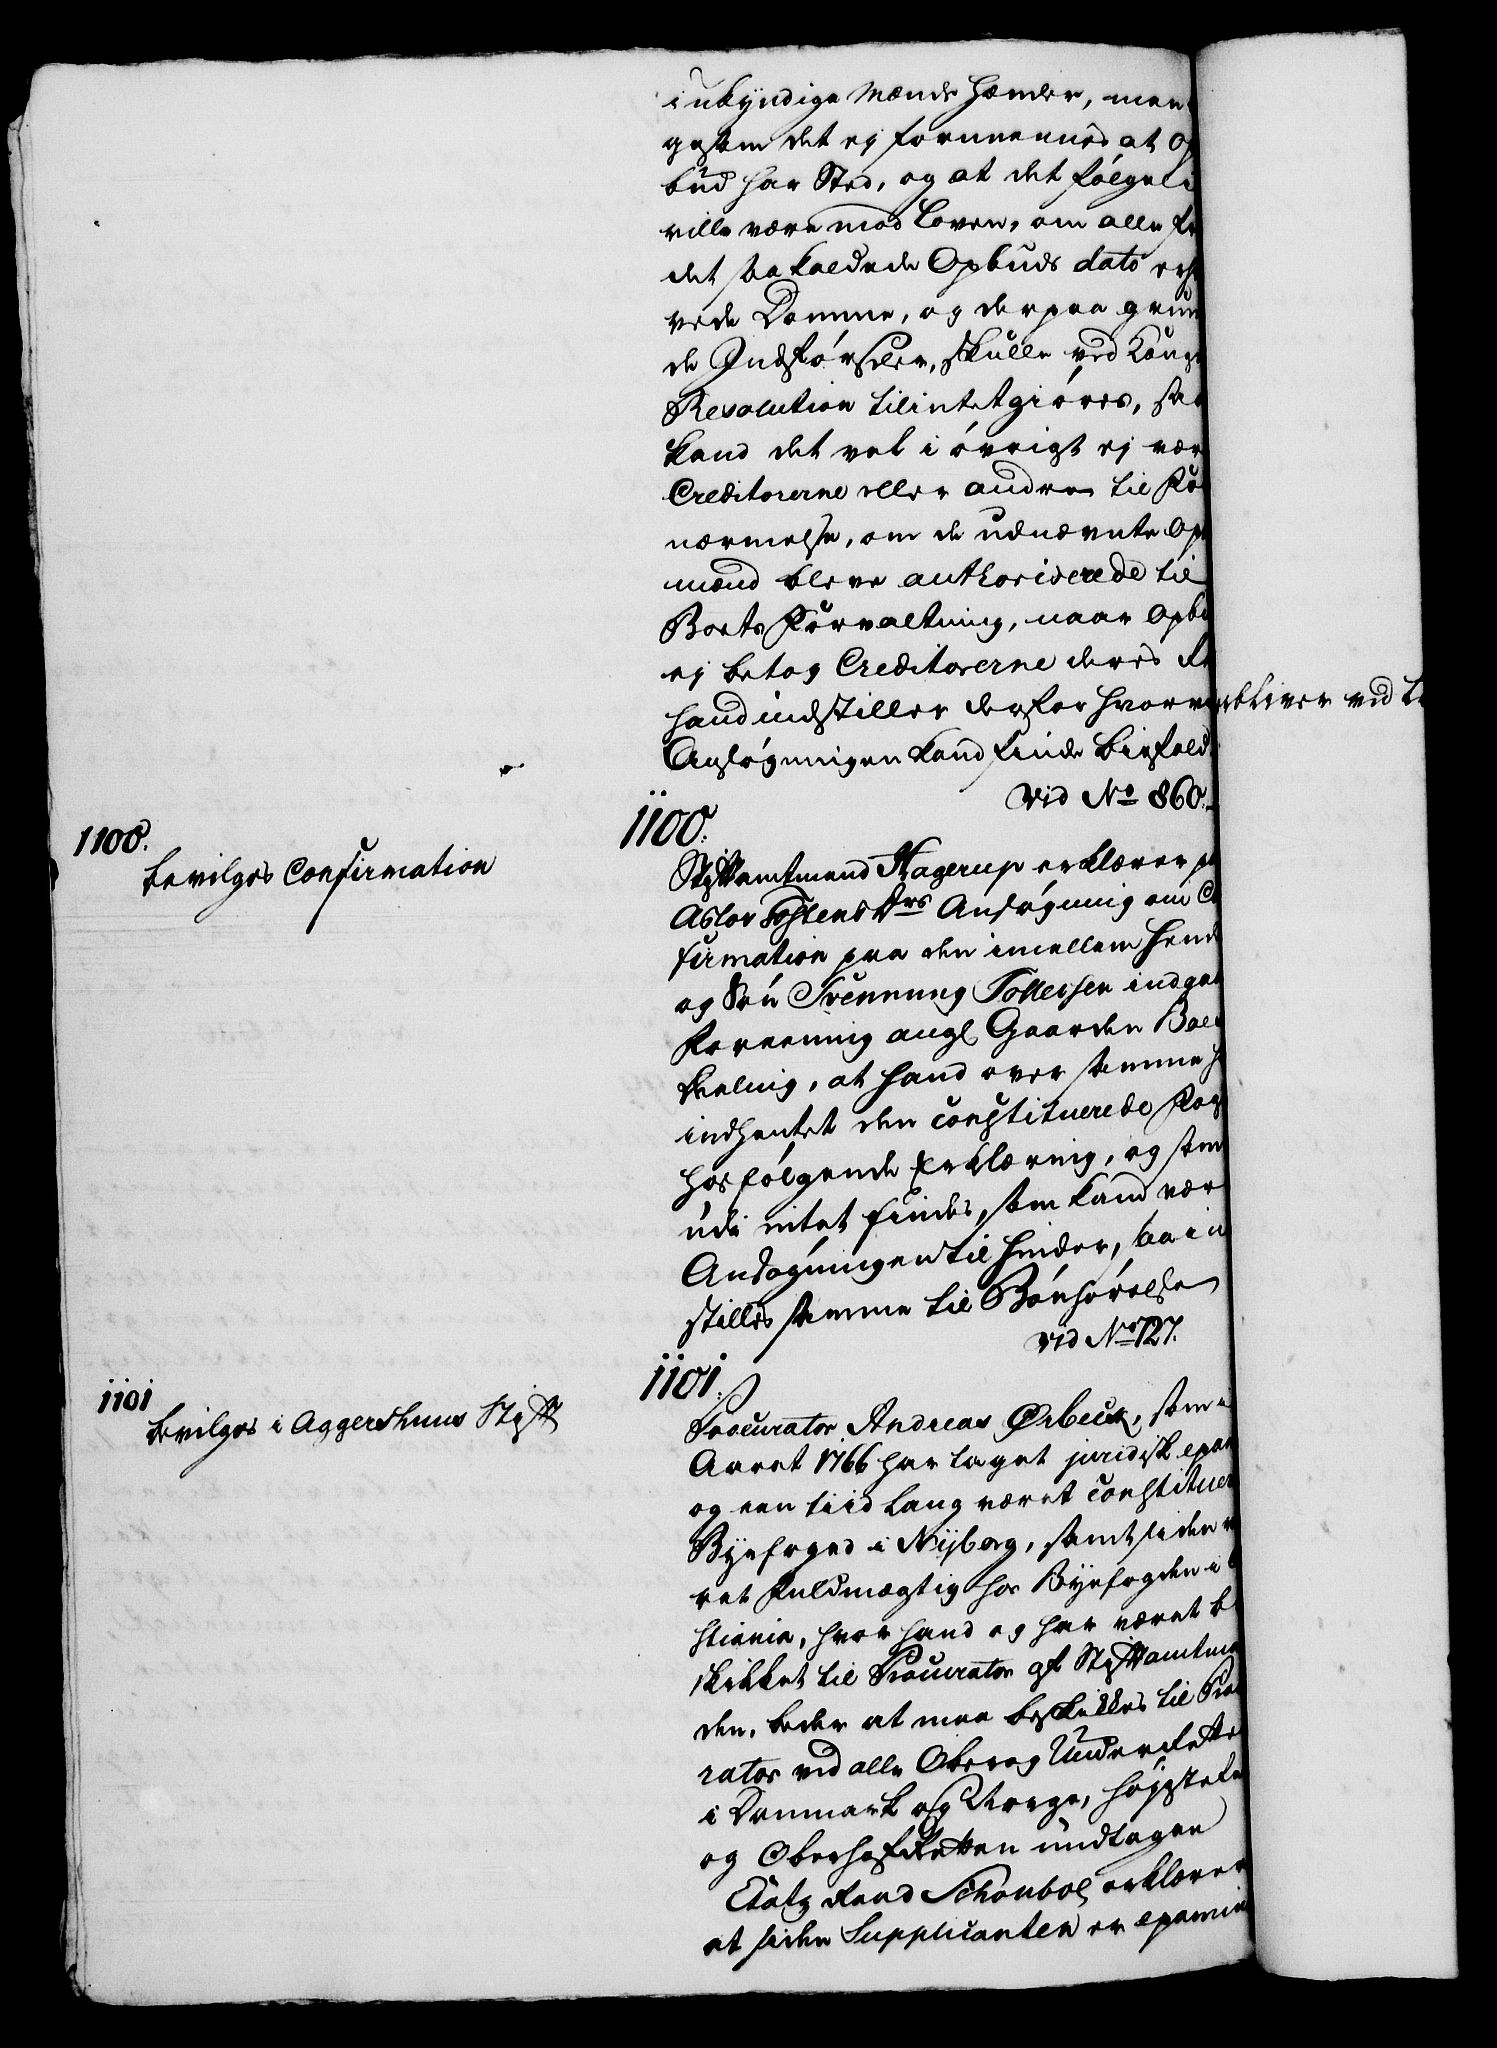 i ukyndige Mænds Hænder, men
gesom det ej fornemmes at Op
bud har Sted, og at det følgeli
ville være mod Loven, om alle fr
det saa kaldede Opbuds dato erh
vede Domme, og derpaa grun
de Indførsler, skulle ved Konge
Resolution tilintetgiøres, saa
kand det vel i øvrigt ej vær
Creditorerne eller andre til For
nærmelse, om de udnævnte Op
mænd bleve authoriserede til
Boets Forvaltning, naar Opbu
ej betog Creditorerne deres Re
hand indstiller derfor hvorv
Ansøgningen kand finde Biefald
bliver ved
vid No 860.
1100.
bevilges Confirmation
1100.
Stiftamtmand Hagerup erklærer p
Aslov Tostensdrs Ansøgning om Co
firmation paa den imellem Hende
og Søn Svennung Tollefsen indgaa
Foreening angl Gaarden
deeling, at hand over samme h
indhentet den constituerede Fog
hosfølgende Erklæring, og som
udi intet findes, som kand vær
Ansøgningen til hinder, saa in
stilles samme til Bønhørelse
vid No 727.
1101
bevilges i Aggershuus Stift
1101.
Procurator Andreas Ørbeck, som
Aaret 1766 har taget juridisk exam
og een tiid lang været constituer
Byefoged i Nyborg, samt siden v
ret Fuldmægtig hos Byefogden i
stiania, hvor hand og har været b
skikket til Procurator af Stiftamtman
den, beder at maa beskikkes til Proc
rator ved alle Ober og Underrette
i Danmark og Norge, Højeste
og Oberhofretten undtagen
Etatz Raad Schonbol erklærer
at siden Supplicanten er examin